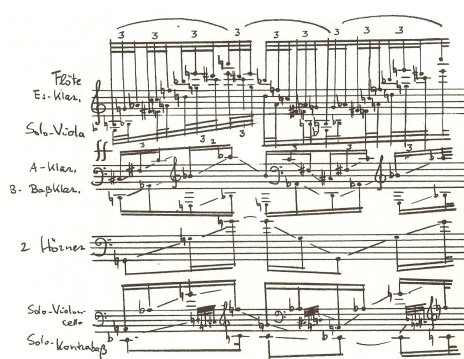 3 3 3 3 3 3 3
Flöte
Es-Klar.
Solo-Viola
3 2 3
ff
3 3 3
A-Klar.
B-Baßklar.
2 Hörner
Solo-Violon
cello
Solo-Kontrabaß